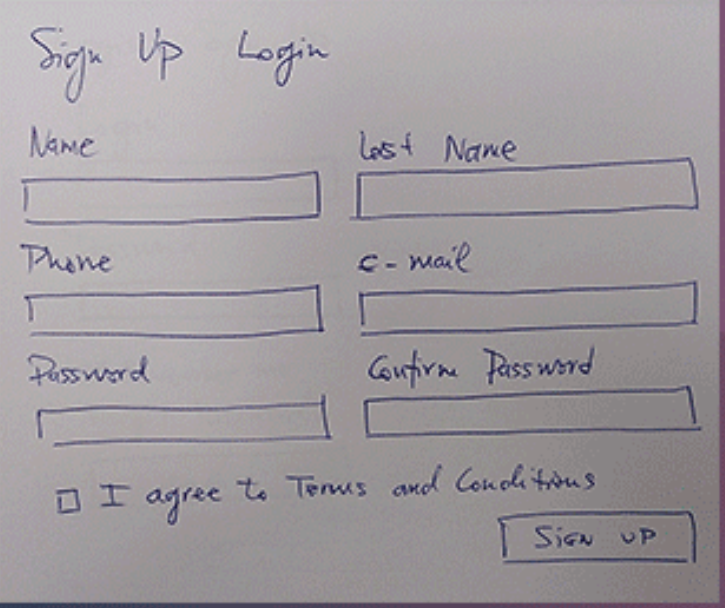 Sign Up Login
Name Last Name
Phone e-mail
Password Confirm Password
I agree to Terms and Conditions
SIGN UP